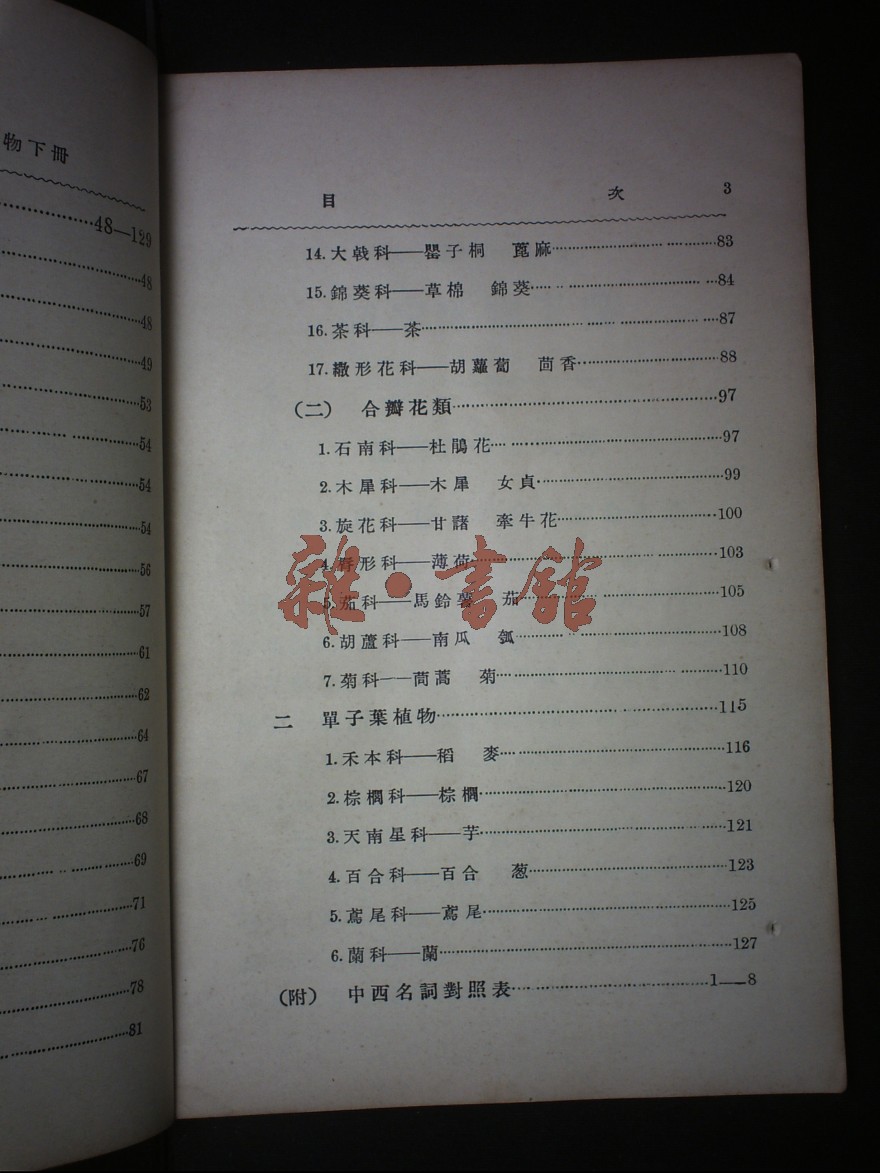 物下冊
48—129
48
48
49
53
54
54
54
56
57
61
62
64
67
68
69
71
76
78
81
目 次 3
14.大戟科——罌子桐 蓖麻 83
15.錦葵科——草棉 錦葵 84
16.茶科——茶 87
17.繖形花科——胡蘿蔔 茴香 88
(二) 合瓣花類 97
1.石南科——杜鵑花 97
2.木犀科——木犀 女貞 99
3.旋花科——甘藷 牽牛花 100
4.脣形科——薄荷 103
5.茄科——馬鈴薯 茄 105
6.胡蘆科——南瓜 瓠 108
7.菊科——茼蒿 菊 110
二 單子葉植物 115
1.禾本科——稻 麥 116
2.棕櫚科——棕櫚 120
3.天南星科——芋 121
4.百合科——百合 葱 123
5.鳶尾科——鳶尾 125
6.蘭科——蘭 127
(附) 中西名詞對照表 1—8
雜·書館